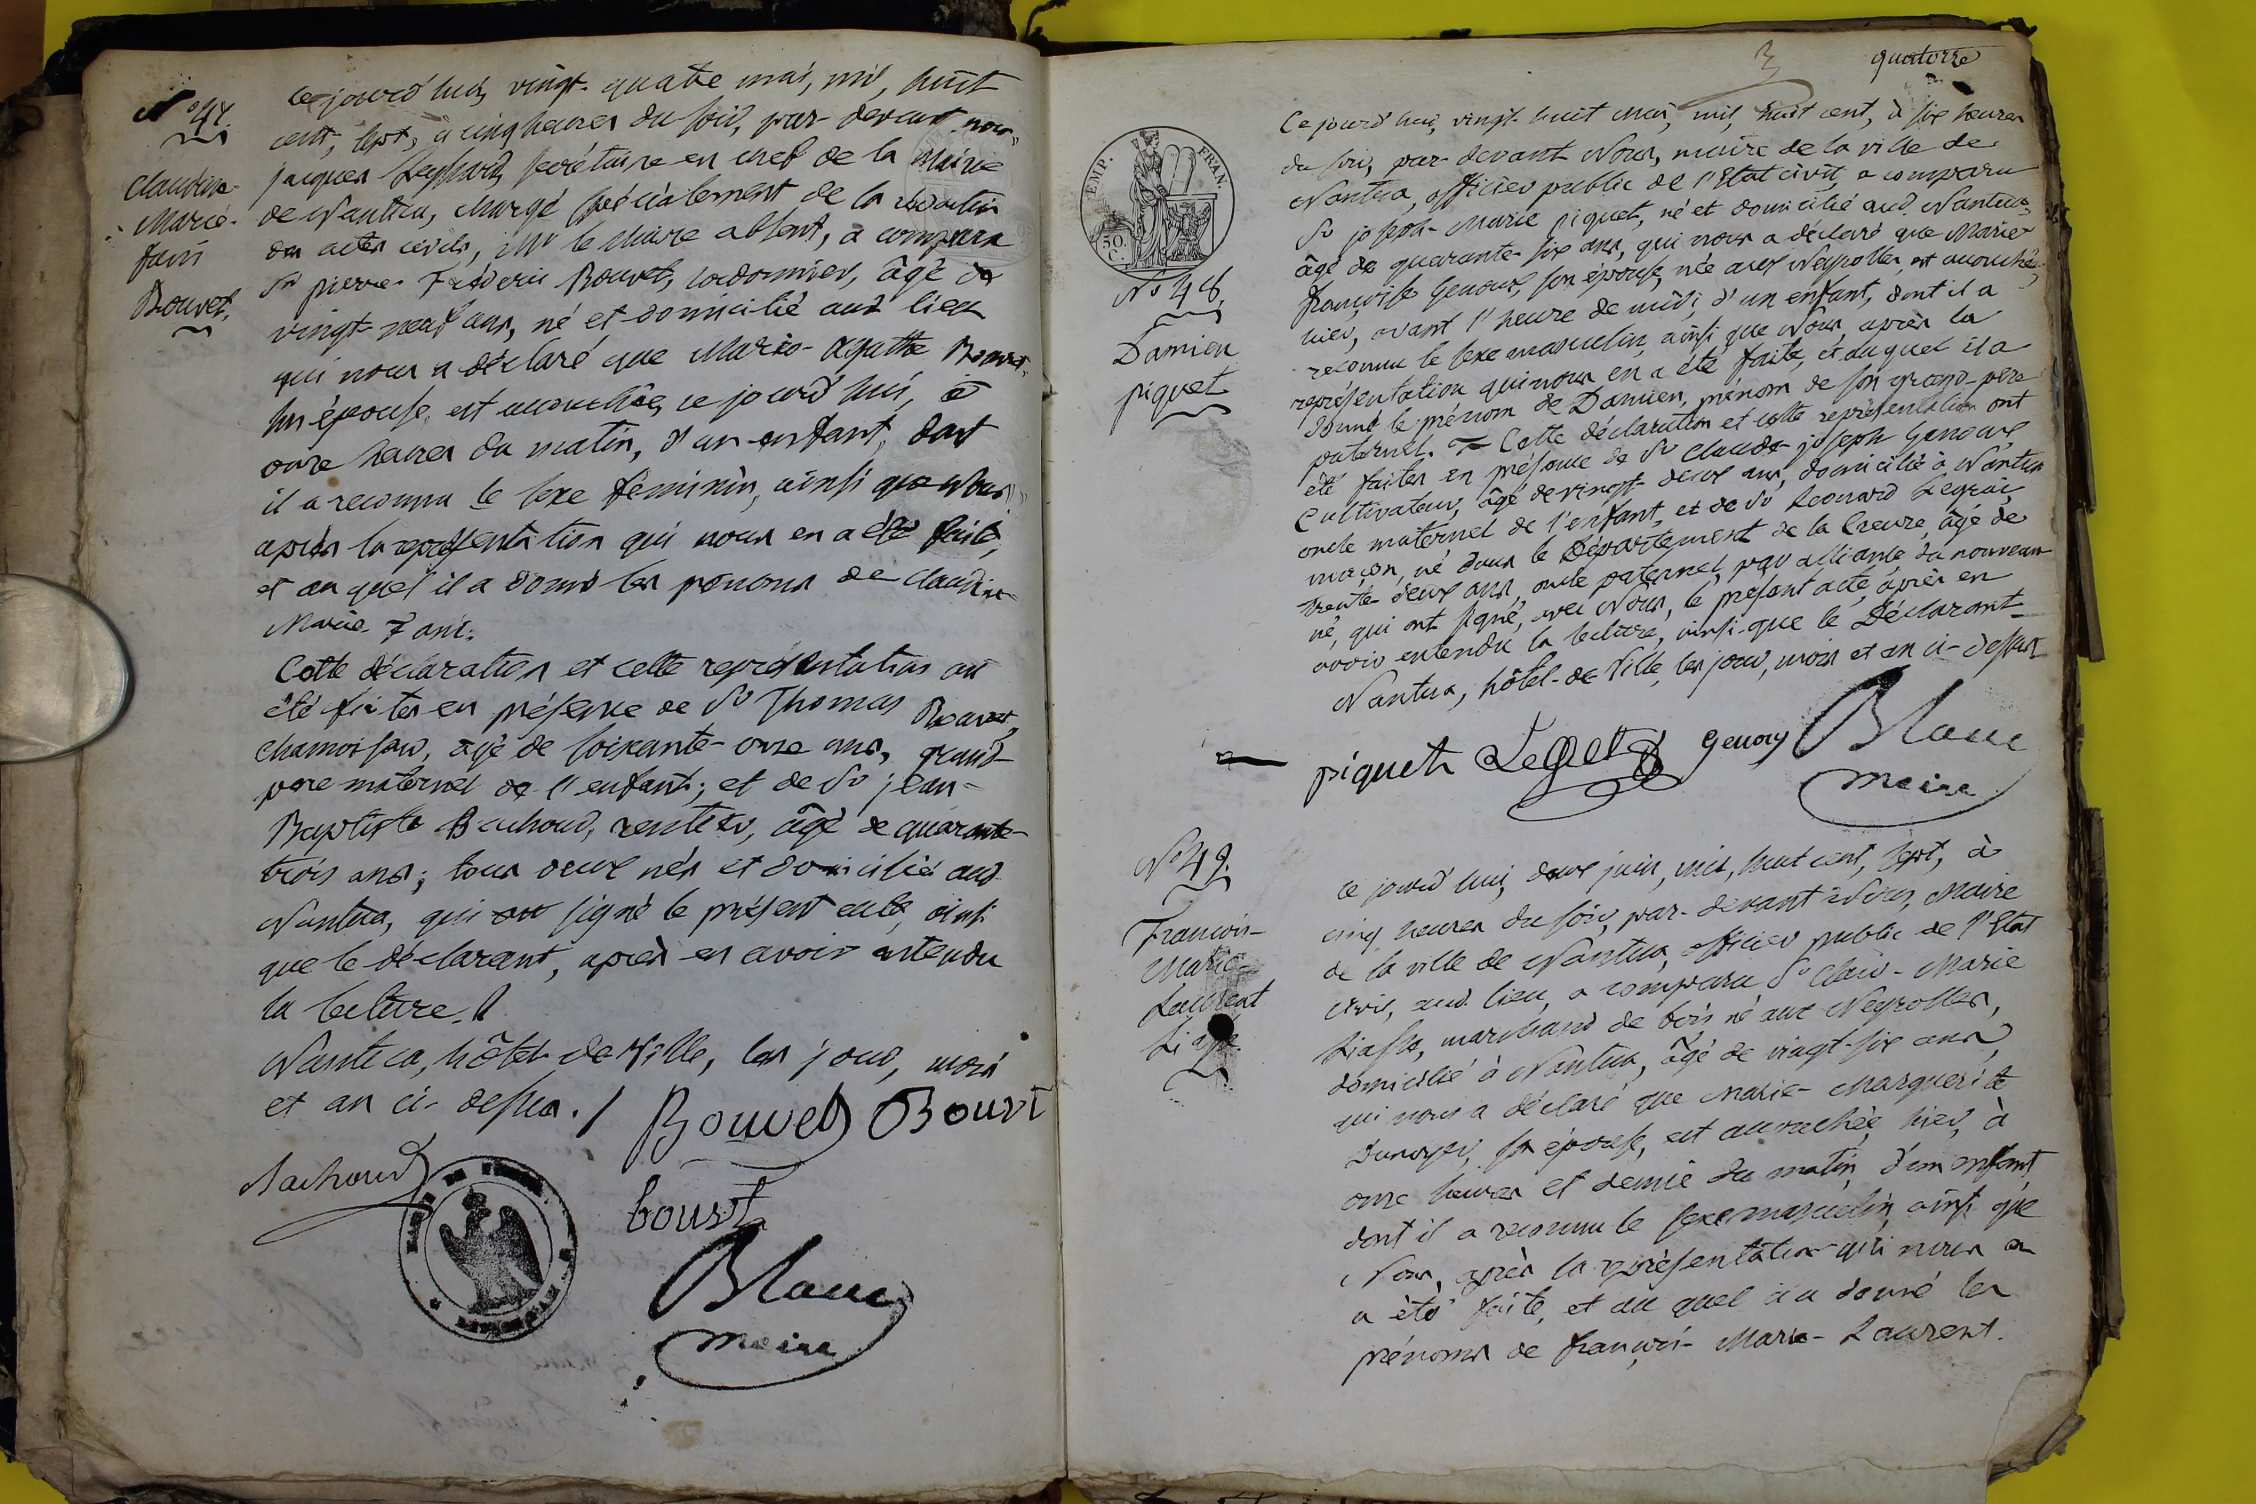 N.° 47.
Claudine-
Marie-
fani
Bouvet.
Ce jourd'hui, vingt-quatre mai, mil, huit
cent, sept, à cinq heures du soir, par-devant nous
jacques secrétaire en chef de la Mairie
de Nantua, chargé spécialement de la rédaction
des actes civils, Mr le Maire absent, a comparu
Sr pierre-Fréderic Bouvet, cordonnier, âgé de
vingt-neuf ans, né et domicilié aud. lieu
qui nous a déclaré que Marie-Agathe Bouvet,
son épouse, est accouchée, ce jourd'hui, à
onze heures du matin, d'un enfant, dont
il a reconnu le sexe féminin, ainsi que Nous
après la représentation qui nous en a été faite,
et au quel il a donné les prénoms de Claudine
Marie-Fani.
Cette déclaration et cette représentation ont
été faites en présence de Sr Thomas Bouvet,
chamoiseur, âgé de soixante-onze ans, grand-
pere maternel de l'enfant; et de Sr jean-
Baptiste Bachoud, rentier, âgé de quarante-
trois ans; tous deux nés et domiciliés aud.
Nantua, qui ont signé le présent acte, ainsi
que le déclarant, après en avoir entendu
la lecture.
Nantua, hôtel-de-Ville, les jour, mois
et an ci-dessus./
Bouvet Bouvt
Bachoud
bouvt
Blanc
Maire
quatorze
EMP. FRAN.
50.
C.
N.° 48.
Damien
piquet
Ce jourd'hui, vingt-huit mai, mil, huit cent, à six heures
du soir, par-devant Nous, maire de la ville de
Nantua, officier public de l'Etat civil, a comparu
Sr joseph-Marie piquet, né et domicilié aud. Nantua,
âgé de quarante-six ans, qui nous a déclaré que Marie-
françoise Genoux, son épouse, née aux Neyrolles, est accouchée,
hier, avant l'heure de midi, d'un enfant, dont il a
reconnu le sexe masculin, ainsi que Nous, après la
représentation qui nous en a été faite, et auquel il a
donné le prénom de Damien, prénom de son grand-père
paternel. Cette déclaration et cette représentation ont
été faites en présence de Sr Claude-joseph Genoux,
Cultivateur, âgé de vingt-deux ans, domicilié à Nantua
oncle maternel de l'enfant, et de Sr Leonard
maçon, né dans le Département de la Creuse, âgé de
trente-deux ans, oncle paternel, par alliance du nouveau
né, qui ont signé, avec Nous, le présent acte, après en
avoir entendu la lecture, ainsi-que le Déclarant
Nantua, hôtel-de-Ville, les jour, mois et an ci-dessus
piquet Genoux Blanc
Maire
N.° 49.
François-
Marie-
Laurent
Ce jourd'hui, deux juin, mil, huit cent, sept, à
cinq heures du soir, par-devant Nous, Maire
de la ville de Nantua, officier public de l'Etat
civil, aud. lieu, a comparu Sr Clair-Marie
marchand de bois né aux Neyrolles,
domicilié à Nantua, âgé de vingt-six ans
qui nous a déclaré que Marie-Marguerite
son épouse, est accouchée, hier, à
onze heures et demie du matin, d'un enfant
dont il a reconnu le sexe masculin, ainsi que
Nous, après la représentation qui nous en
a été faite, et au quel il a donné les
prénoms de françois-Marie-Laurent.